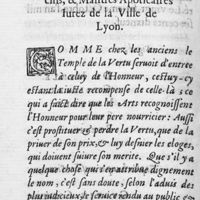 cins, & Maistres Apoticaires
Iurez de la Ville de
Lyon.
COMME chez les anciens le
Temple de la Vertu seruoit d'entree
à celuy de l'Honneur, cestuy-cy
estant la iuste recompense de celle-là: ce
qui a faict dire que les Arts recognoissent
l'Honneur pour leur pere nourricier: Aussi
c'est prostituer & perdre la Vertu, que de la
priuer de son prix, & luy desnier les eloges,
qui doiuent suiure son merite. Que s'il y a
quelque chose qui s'en attribue dignement
le nom, c'est sans doute, selon l'aduis des
plus iudicieux, le seruice rendu au public &